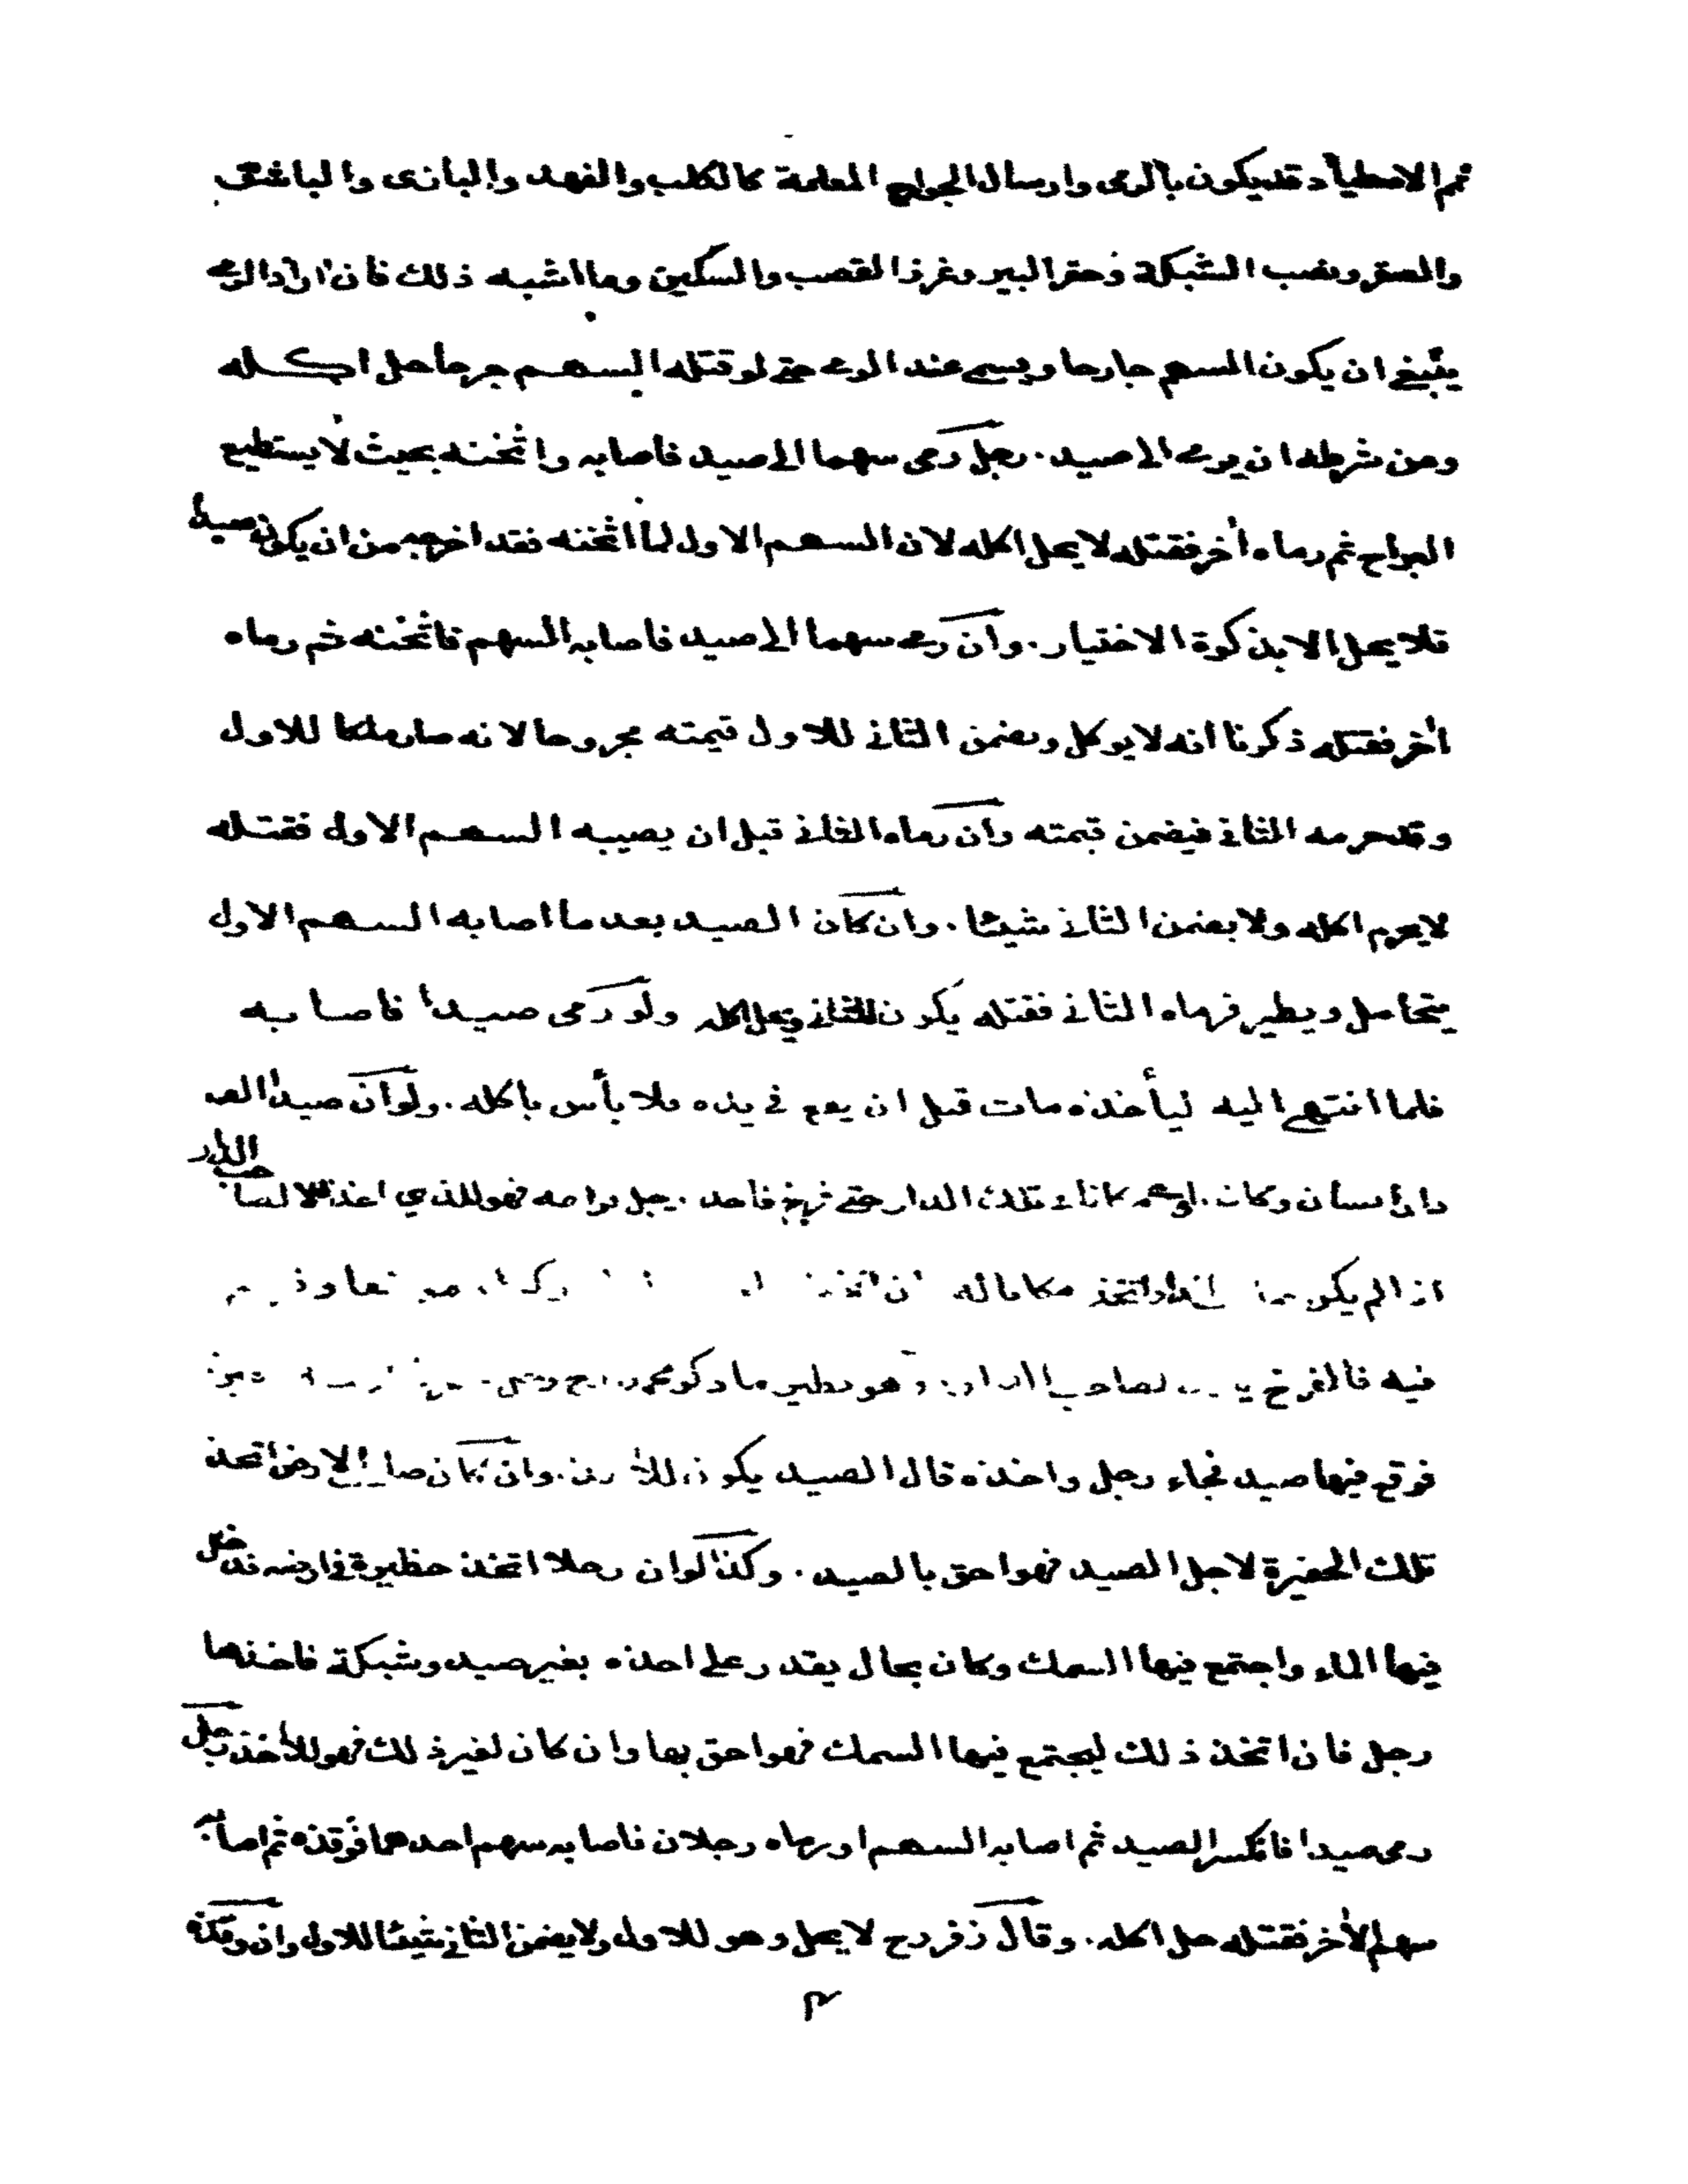 ثم الاصطياد قد يكون بالرمى وارسال الجوارح المعلمة كالكلب والفهد والبازى والباشق
والصقر ونصب الشبكة وحفر البير وغرز القصب والسكين وما اشبه ذلك فان اراد الرمى
ينبغى ان يكون السهم جارحا ويسمى عند الرمى حتى لو قتله السهم جرحا حل اكله
ومن شرطه ان يرمى الى صيد. رجل رمى سهما الى صيد فاصابه واثخنه بحيث لا يستطيع
البراح ثم رماه أخر فقتله لا يحل اكله لان السهم الاول لما اثخنه فقد اخرجه من ان يكون صيدا
فلا يحل الا بذكوة الاختيار. وان رمى سهما الى صيد فاصابه السهم فاثخنه ثم رماه
أخر فقتله ذكرنا انه لا يوكل ويضمن الثانى للاول قيمته مجروحا لانه صار ملكا للاول
وقد حرمه الثانى فيضمن قيمته وان رماه الثانى قبل ان يصيبه السهم الاول فقتله
لا يحرم اكله ولا يضمن الثانى شيئا. وان كان الصيد بعد ما اصابه السهم الاول
يتحامل ويطير فرماه الثانى فقتله يكون للثانى ويحل اكله ولو رمى صيدا فاصابه
فلما انتهى اليه ليأخذه مات قبل ان يقع فى يده فلا بأس باكله. ولو ان صيدا
دار انسان وكان تلك الدار حتى فرخ رجل فهو للذى اخذ لا لصاحب الدار
اذا لم يكن اتخذ مكانا له
فيه فالفرخ لصاحب الدار وهو نظير ما ذكر محمد رح
فوقع فيها صيد فجاء رجل واخذه قال الصيد يكون للأخذ. وان كان صاحب الارض اتخذ
تلك الحفيرة لاجل الصيد فهو احق بالصيد. وكذا لو ان رجلا اتخذ حظيرة فى ارضه فدخل
فيها الماء واجتمع فيها السمك وكان بحال يقدر على اخذه بغير صيد وشبكة فاخذها
رجل فان اتخذ ذلك ليجتمع فيها السمك فهو احق بها وان كان لغير ذلك فهو للأخذ رجل
رمى صيدا فانكسر الصيد ثم اصابه السهم او رماه رجلان فاصابه سهم احدهما فوقذه ثم اصابه
سهم الأخر فقتله حل اكله. وقال زفر رح لا يحل وهو للاول ولا يضمن الثانى شيئا للاول وان وقذه